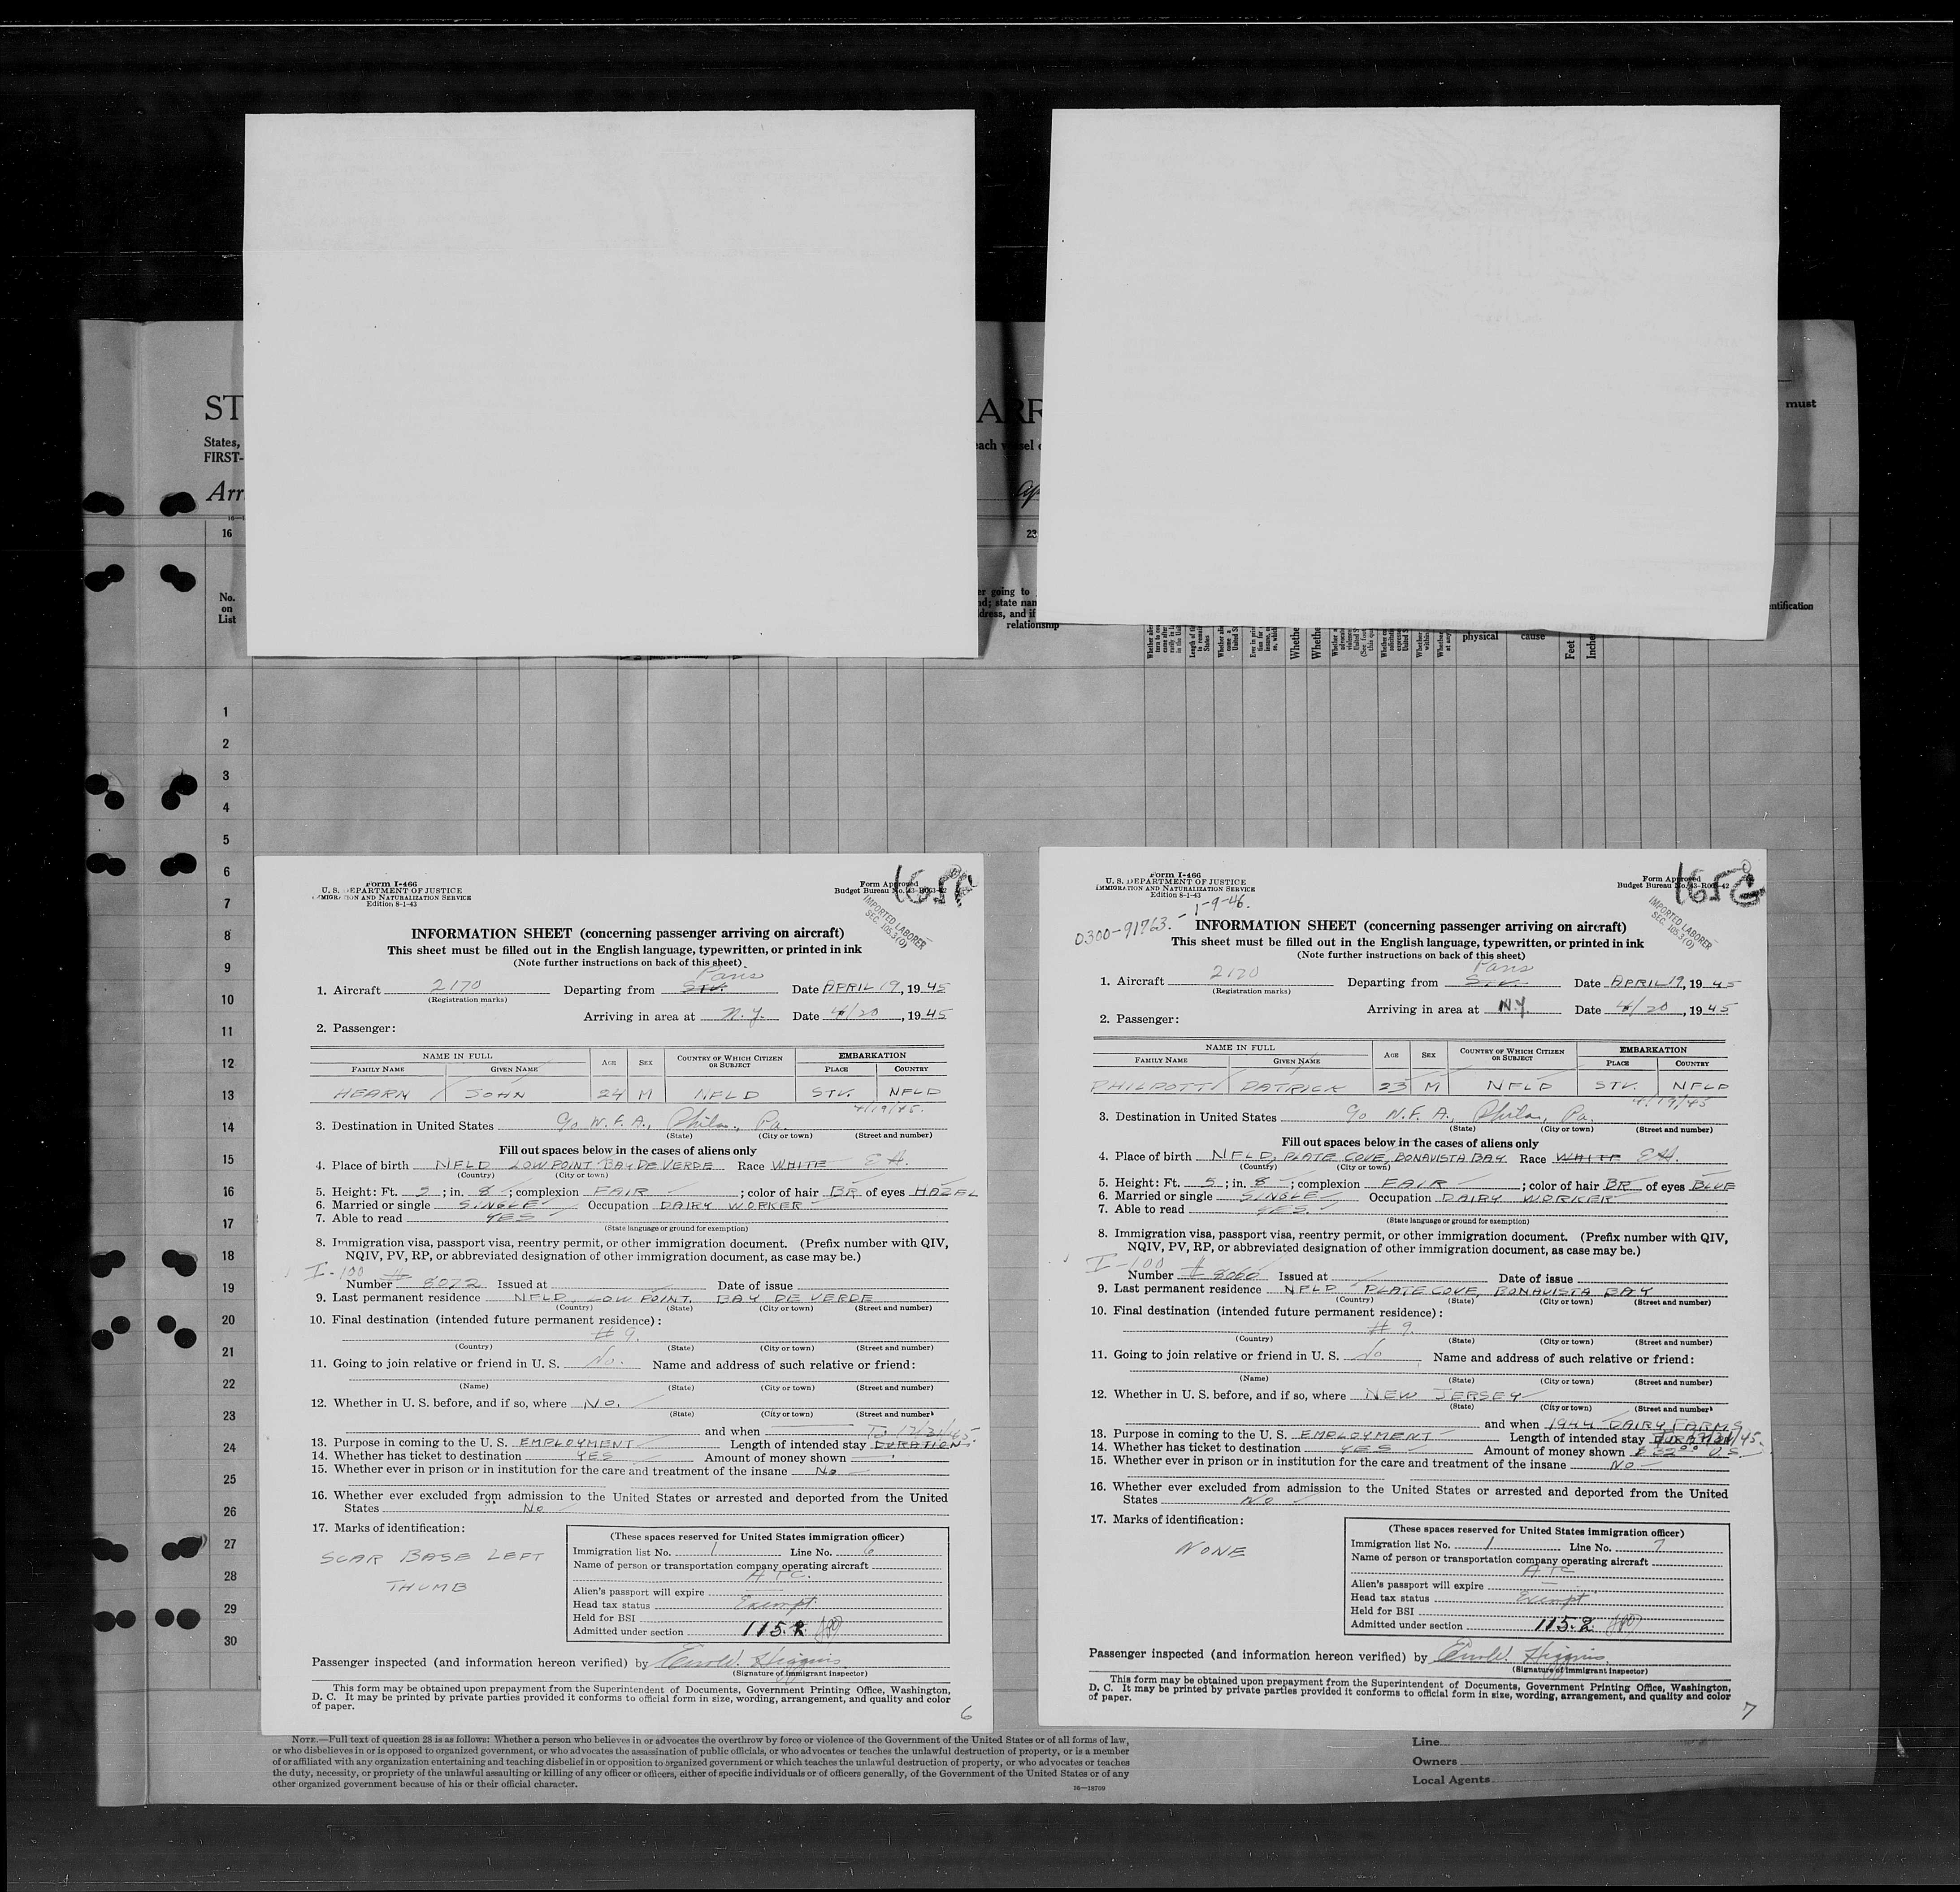 ST
ARR
must
States,
each vessel
FIRST-
Arr
16
23
No.
on
List
er going to
relationship
physical
cause
Feet
Inches
entification
1
2
3
4
5
6
7
8
9
10
11
12
13
14
15
16
17
18
19
20
21
22
23
24
25
26
27
28
29
30
Form I-466
U. S. DEPARTMENT OF JUSTICE
IMMIGRATION AND NATURALIZATION SERVICE
Edition 8-1-43
Form Approved
Budget Bureau No. 43-R063-42
165F
IMPORTED LABORER
SEC. 105.3 (0)
INFORMATION SHEET (concerning passenger arriving on aircraft)
This sheet must be filled out in the English language, typewritten, or printed in ink
(Note further instructions on back of this sheet)
Paris
1. Aircraft 2170 Departing from STV. Date APRIL 19, 1945
(Registration marks)
Arriving in area at N.Y. Date 4/20, 1945
2. Passenger:
NAME IN FULL AGE SEX COUNTRY OF WHICH CITIZEN OR SUBJECT EMBARKATION
FAMILY NAME GIVEN NAME PLACE COUNTRY
HEARN JOHN 24 M NFLD STV. NFLD
4/19/45.
3. Destination in United States % W.F.A., Phila., Pa.
(State) (City or town) (Street and number)
Fill out spaces below in the cases of aliens only
4. Place of birth NFLD LOW POINT BAY DE VERDE Race WHITE
(Country) (City or town)
5. Height: Ft. 5; in. 8; complexion FAIR; color of hair BR of eyes HAZEL
6. Married or single SINGLE Occupation DAIRY WORKER
7. Able to read YES
(State language or ground for exemption)
8. Immigration visa, passport visa, reentry permit, or other immigration document. (Prefix number with QIV,
NQIV, PV, RP, or abbreviated designation of other immigration document, as case may be.)
I-100
Number # 8072 Issued at Date of issue
9. Last permanent residence NFLD, LOW POINT. BAY DE VERDE
(Country) (State) (City or town) (Street and number)
10. Final destination (intended future permanent residence):
# 9.
(Country) (State) (City or town) (Street and number)
11. Going to join relative or friend in U. S. No. Name and address of such relative or friend:
(Name) (State) (City or town) (Street and number)
12. Whether in U. S. before, and if so, where NO.
(State) (City or town) (Street and number)
and when To 12/31/45
13. Purpose in coming to the U. S. EMPLOYMENT Length of intended stay DURATION
14. Whether has ticket to destination YES Amount of money shown
15. Whether ever in prison or in institution for the care and treatment of the insane No
16. Whether ever excluded from admission to the United States or arrested and deported from the United
States No
17. Marks of identification:
SCAR BASE LEFT
THUMB
(These spaces reserved for United States immigration officer)
Immigration list No. 1 Line No. 6
Name of person or transportation company operating aircraft
ATC.
Alien's passport will expire
Head tax status Exempt.
Held for BSI
Admitted under section 115.2
Passenger inspected (and information hereon verified) by Higgins
(Signature of immigrant inspector)
This form may be obtained upon prepayment from the Superintendent of Documents, Government Printing Office, Washington,
D. C. It may be printed by private parties provided it conforms to official form in size, wording, arrangement, and quality and color
of paper.
6
Form I-466
U. S. DEPARTMENT OF JUSTICE
IMMIGRATION AND NATURALIZATION SERVICE
Edition 8-1-43
Form Approved
Budget Bureau No. 43-R063-42
165G
IMPORTED LABORER
SEC. 105.3 (0)
0300-91763.- 1-9-46.
INFORMATION SHEET (concerning passenger arriving on aircraft)
This sheet must be filled out in the English language, typewritten, or printed in ink
(Note further instructions on back of this sheet)
Paris
1. Aircraft 2170 Departing from STV. Date APRIL 19, 1945
(Registration marks)
Arriving in area at N.Y. Date 4/20, 1945
2. Passenger:
NAME IN FULL AGE SEX COUNTRY OF WHICH CITIZEN OR SUBJECT EMBARKATION
FAMILY NAME GIVEN NAME PLACE COUNTRY
PHILPOTT PATRICK 23 M NFLD STV. NFLD
4/19/45
3. Destination in United States % W.F.A., Phila., Pa.
(State) (City or town) (Street and number)
Fill out spaces below in the cases of aliens only
4. Place of birth NFLD, PLATE COVE, BONAVISTA BAY Race WHITE
(Country) (City or town)
5. Height: Ft. 5; in. 8; complexion FAIR; color of hair BR of eyes BLUE
6. Married or single SINGLE Occupation DAIRY WORKER
7. Able to read YES.
(State language or ground for exemption)
8. Immigration visa, passport visa, reentry permit, or other immigration document. (Prefix number with QIV,
NQIV, PV, RP, or abbreviated designation of other immigration document, as case may be.)
I-100
Number # 8060 Issued at Date of issue
9. Last permanent residence NFLD PLATE COVE, BONAVISTA BAY
(Country) (State) (City or town) (Street and number)
10. Final destination (intended future permanent residence):
# 9.
(Country) (State) (City or town) (Street and number)
11. Going to join relative or friend in U. S. No Name and address of such relative or friend:
(Name) (State) (City or town) (Street and number)
12. Whether in U. S. before, and if so, where NEW JERSEY
(State) (City or town) (Street and number)
and when 1944 DAIRY FARMS
13. Purpose in coming to the U. S. EMPLOYMENT Length of intended stay DURATION 12/31/45.
14. Whether has ticket to destination YES Amount of money shown
15. Whether ever in prison or in institution for the care and treatment of the insane NO
16. Whether ever excluded from admission to the United States or arrested and deported from the United
States No
17. Marks of identification:
NONE
(These spaces reserved for United States immigration officer)
Immigration list No. 1 Line No. 7
Name of person or transportation company operating aircraft
ATC
Alien's passport will expire
Head tax status Exempt
Held for BSI
Admitted under section 115.2
Passenger inspected (and information hereon verified) by Higgins.
(Signature of immigrant inspector)
This form may be obtained upon prepayment from the Superintendent of Documents, Government Printing Office, Washington,
D. C. It may be printed by private parties provided it conforms to official form in size, wording, arrangement, and quality and color
of paper.
7
NOTE.—Full text of question 28 is as follows: Whether a person who believes in or advocates the overthrow by force or violence of the Government of the United States or of all forms of law,
or who disbelieves in or is opposed to organized government, or who advocates the assassination of public officials, or who advocates or teaches the unlawful destruction of property, or is a member
of or affiliated with any organization entertaining and teaching disbelief in or opposition to organized government or which teaches the unlawful destruction of property, or who advocates or teaches
the duty, necessity, or propriety of the unlawful assaulting or killing of any officer or officers, either of specific individuals or of officers generally, of the Government of the United States or of any
other organized government because of his or their official character.
16—18709
Line
Owners
Local Agents